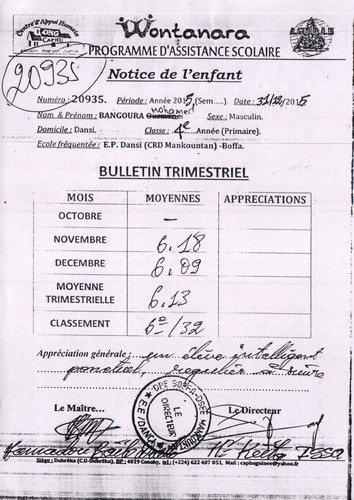 Centre d'Appui Humain
ONG
CAPHU
Wontanara
PROGRAMME D'ASSISTANCE SCOLAIRE
20935
Notice de l'enfant
Numéro : 20935. Période : Année 2015 (Sem.....). Date : 31/12/2015
Nom & Prénom : BANGOURA Mohamed Sexe : Masculin.
Domicile : Dansi. Classe : 4e Année (Primaire).
Ecole fréquentée : E.P. Dansi (CRD Mankountan) -Boffa.
BULLETIN TRIMESTRIEL
MOIS MOYENNES APPRECIATIONS
OCTOBRE –
NOVEMBRE 6.18
DECEMBRE 6.09
MOYENNE
TRIMESTRIELLE 6.13
CLASSEMENT 6e/32
Appréciation générale : un élève intelligent
ponctuel, régulier à suivre
Le Maître... Le Directeur
LE
DIRECTEUR
Siège : Dubréka (C.U-Dubréka). BP : 4019 Conakry. Tel : (+224) 622 407 051. Mail : caphuguinee@yahoo.fr